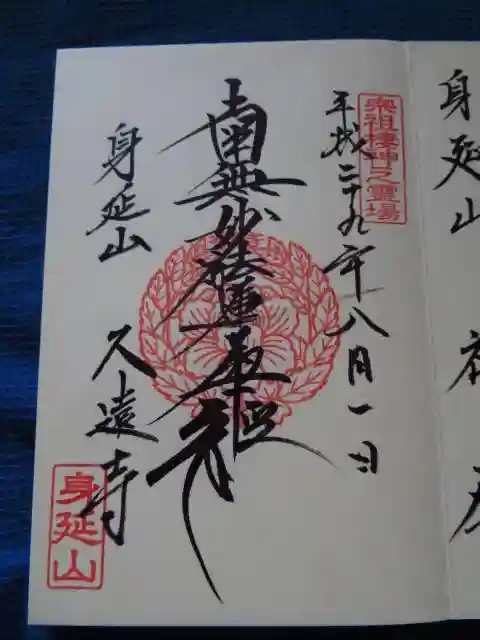 身延山
宗祖棲神之霊場
平成二十九年八月一日
南無妙法蓮華経
身延山
久遠寺
身延山